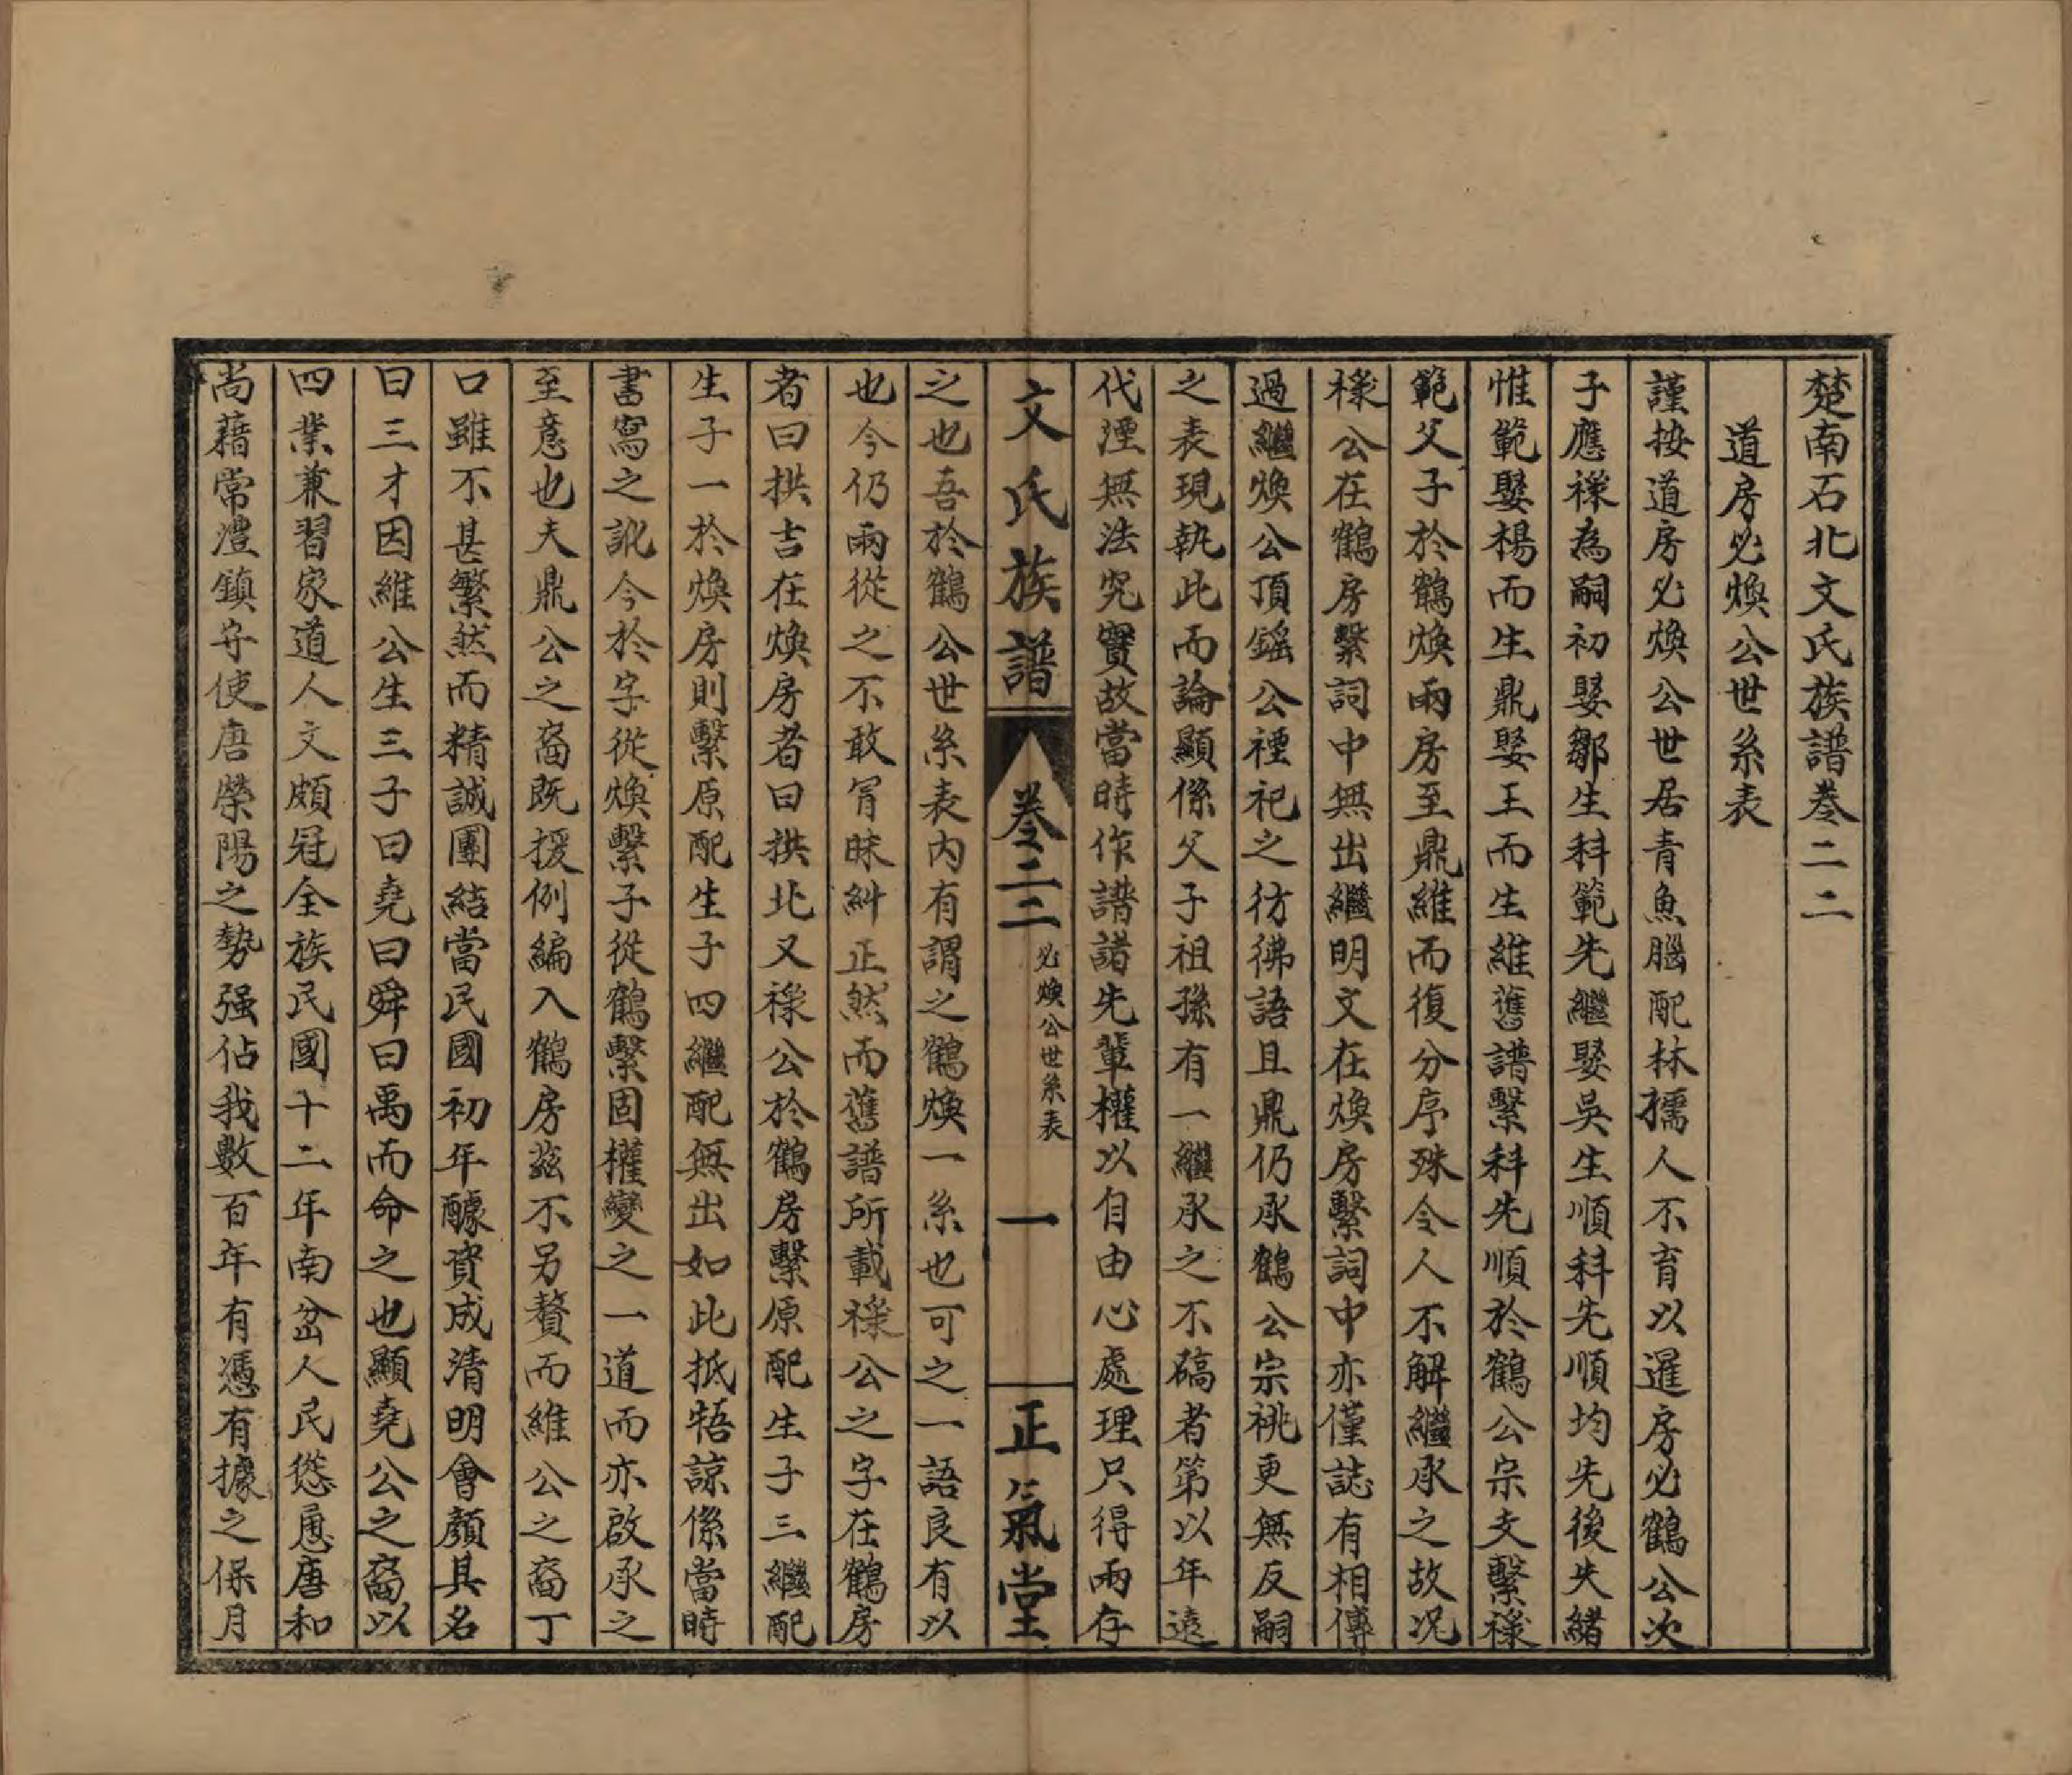 楚南石北文氏族譜卷二二
道房必煥公世系表
謹按道房必煥公世居青魚腦配林孺人不育以暹房必鶴公次
子應檖為嗣初娶鄒生科範先繼娶吳生順科先順均先後失緒
惟範娶楊而生鼎娶王而生維舊譜繫科先順於鶴公宗支繫檖
範父子於鶴煥兩房至鼎維而復分序殊令人不解繼承之故况
檖公在鶴房繫詞中無出繼明文在煥房繫詞中亦僅誌有相傳
過繼煥公頂鎐公禋祀之彷彿語且鼎仍承鶴公宗祧更無反嗣
之表現執此而論顯係父子祖孫有一繼承之不碻者第以年遠
代湮無法究實故當時作譜諸先輩權以自由心處理只得兩存
文氏族譜
卷二二
必煥公世系表
一
正氣堂
之也吾於鶴公世系表內有謂之鶴煥一系也可之一語良有以
也今仍兩從之不敢冒昧糾正然而舊譜所載檖公之字在鶴房
者曰拱吉在煥房者曰拱北又檖公於鶴房繫原配生子三繼配
生子一於煥房則繫原配生子四繼配無出如此抵牾諒係當時
書寫之訛今於字從煥繫子從鶴繫固權變之一道而亦啟承之
至意也夫鼎公之裔既援例編入鶴房茲不另贅而維公之裔丁
口雖不甚繁然而精誠團結當民國初年醵資成清明會顏其名
曰三才因維公生三子曰堯曰舜曰禹而命之也顯堯公之裔以
四業兼習家道人文頗冠全族民國十二年南岔人民慫恿唐和
尚藉常澧鎮守使唐榮陽之勢强佔我數百年有憑有據之保月